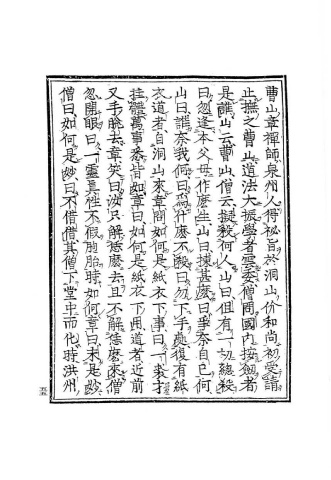 曹山章禪師泉州人得秘旨於洞山价和尚初受請
止撫之曹山道法大振學者雲委僧問國內按劒者
是誰山云曹山僧云擬殺何人山曰但有一切總殺
曰忽逢本父母作麼生山曰揀甚麼曰爭奈自己何
山曰誰奈我何曰爲什麼不殺曰勿下手處復有紙
衣道者自洞山來章問如何是紙衣下事曰一裘才
挂體萬事悉皆如章曰如何是紙衣下用道者近前
叉手脫去章笑曰汝只解恁麼去且不解恁麼來僧
忽開眼曰一靈眞性不假胞胎時如何章曰未是妙
僧曰如何是妙曰不借借其僧下堂中而化時洪州
五五